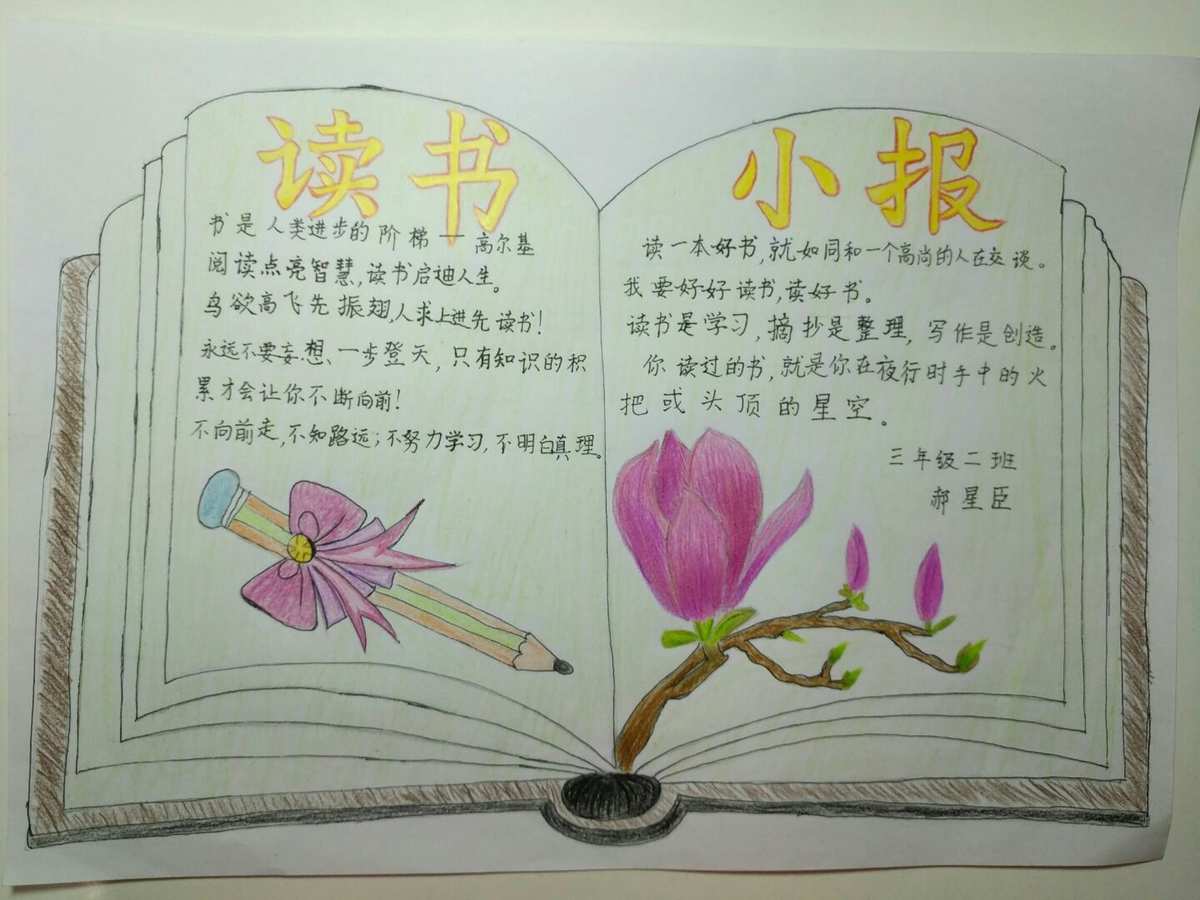 读书
书是人类进步的阶梯——高尔基
阅读点亮智慧,读书启迪人生。
鸟欲高飞先振翅,人求上进先读书!
永远不要妄想、一步登天,只有知识的积
累才会让你不断向前!
不向前走,不知路远;不努力学习,不明白真理。
小报
读一本好书,就如同和一个高尚的人在交谈。
我要好好读书,读好书。
读书是学习,摘抄是整理,写作是创造。
你读过的书,就是你在夜行时手中的火
把或头顶的星空。
三年级二班
郝星臣